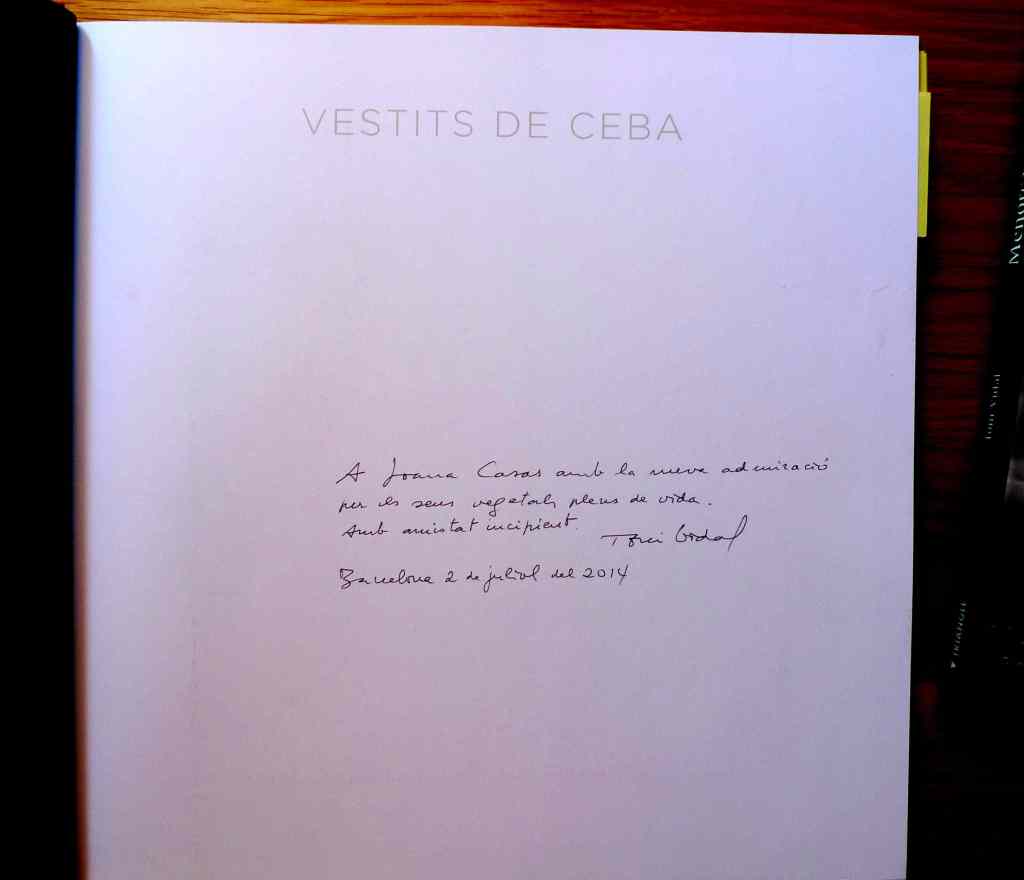 VESTITS DE CEBA
A Joana Casas amb la meva admiració
per els seus vegetals plens de vida.
Amb amistat incipient.
Toni Vidal
Barcelona 2 de juliol del 2014
Menorca
Toni Vidal
TRIANGLE